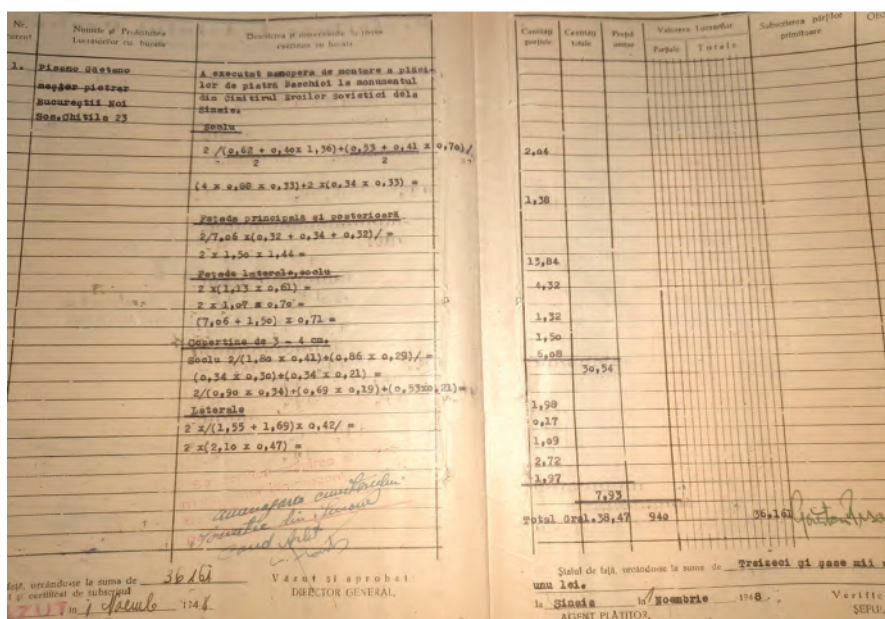 Nr.
curent
Numele și
Lucrărilor cu bucata
Descrierea și dimensiunile lucrării
executate cu bucata
1. Pisano Gaetano
meșter pietrar
Bucureștii Noi
Sos.Chitila 23
A executat manopera de montare a plăci-
lor de piatră Baschioi la monumentul
din Cimitirul Eroilor Sovietici dela
Sinaia.
Soclu
2 /(0,62 + 0,40x 1,36)+(0,53 + 0,41 x 0,70)/
2 2
(4 x 0,88 x 0,33)+2 x(0,34 x 0,33) =
Fațada principală și posterioară
2/7,06 x(0,32 + 0,34 + 0,32)/ =
2 x 1,50 x 1,44 =
Fațade laterale,soclu
2 x(1,13 x 0,61) =
2 x 1,07 x 0,70 =
(7,06 + 1,50) x 0,71 =
Copertine de 3 - 4 cm.
Soclu 2/(1,80 x 0,41)+(0,86 x 0,29)/ =
(0,34 x 0,30)+(0,34 x 0,21) =
2/(0,90 x 0,34)+(0,69 x 0,19)+(0,53x0,21)=
Laterale
2 x/(1,55 + 1,69)x 0,42/ =
2 x(2,10 x 0,47) =
amenajarea cimitirului
din Sinaia
față, urcându-se la suma de 36161
și certificat de subscrisul
VĂZUT în 1 Noemb 1948
Văzut și aprobat
DIRECTOR GENERAL,
Cantități
parțiale
Cantități
totale
Prețul
unitar
Valoarea Lucrărilor
Parțiale Totale
Subscrierea părților
primitoare
2,04
1,38
13,84
4,32
1,32
1,50
6,08
30,54
1,98
0,17
1,09
2,72
1,97
7,93
Total Gral.38,47 940 36.161
Statul de față, urcându-se la suma de Treizeci și șase mii
unu lei.
la Sinaia în 1 Noembrie 1948
AGENT PLĂTITOR,
ȘEFUL